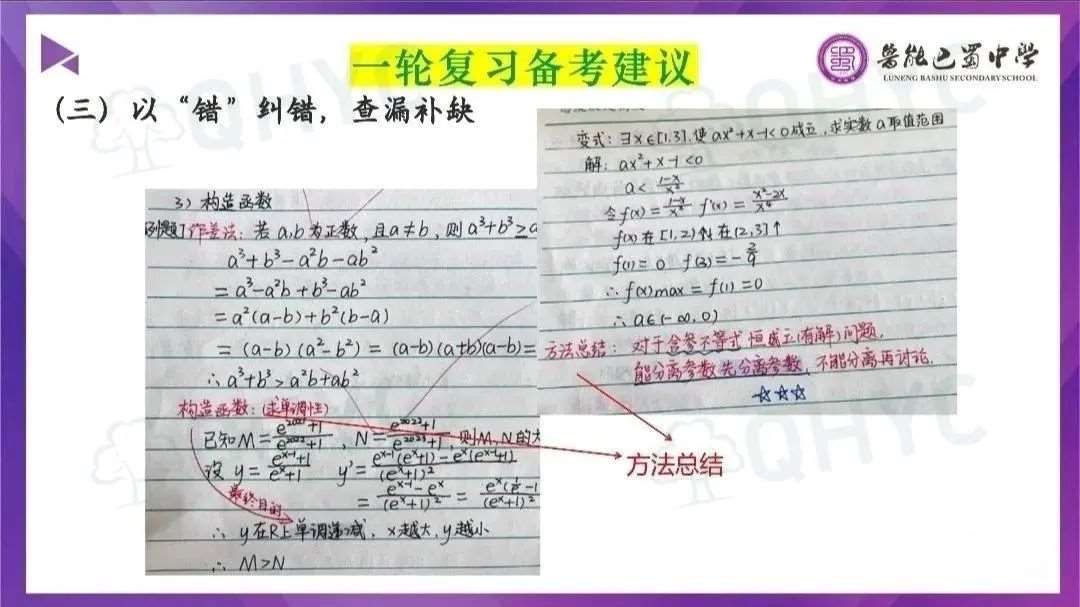 一轮复习备考建议
鲁能巴蜀中学
LUNENG BASHU SECONDARY SCHOOL
(三) 以“错”纠错，查漏补缺
3) 构造函数
例题1 作差法: 若 a,b 为正数, 且a≠b, 则 a³+b³≥a
a³+b³-a²b-ab²
=a³-a²b+b³-ab²
=a²(a-b)+b²(b-a)
=(a-b)(a²-b²)=(a-b)(a+b)(a-b)=
∴a³+b³>a²b+ab²
构造函数: (求单调性)
已知M=(e²⁰²¹+1)/(e²⁰²²+1), N=(e²⁰²²+1)/(e²⁰²³+1), 则M,N的大
设 y=(eˣ⁻¹+1)/(eˣ+1) y'=(eˣ⁻¹(eˣ+1)-eˣ(eˣ⁻¹+1))/(eˣ+1)²
最终目的
=(eˣ⁻¹-eˣ)/(eˣ+1)²=(eˣ(1/e-1)/(eˣ+1)²
∴ y在R上单调递减, x越大, y越小
∴ M>N
变式: ∃x∈[1,3], 使 ax²+x-1<0成立, 求实数a取值范围
解: ax²+x-1<0
a<(1-x)/x²
令f(x)=(1-x)/x² f'(x)=(x²-2x)/x⁴
f(x)在[1,2)↓ 在[2,3]↑
f(1)=0 f(3)=-2/9
∴f(x)max=f(1)=0
∴a∈(-∞,0)
方法总结: 对于含参不等式恒成立(有解)问题,
能分离参数先分离参数, 不能分离再讨论.
☆☆☆
方法总结
QHYC
QHYC
QHYC